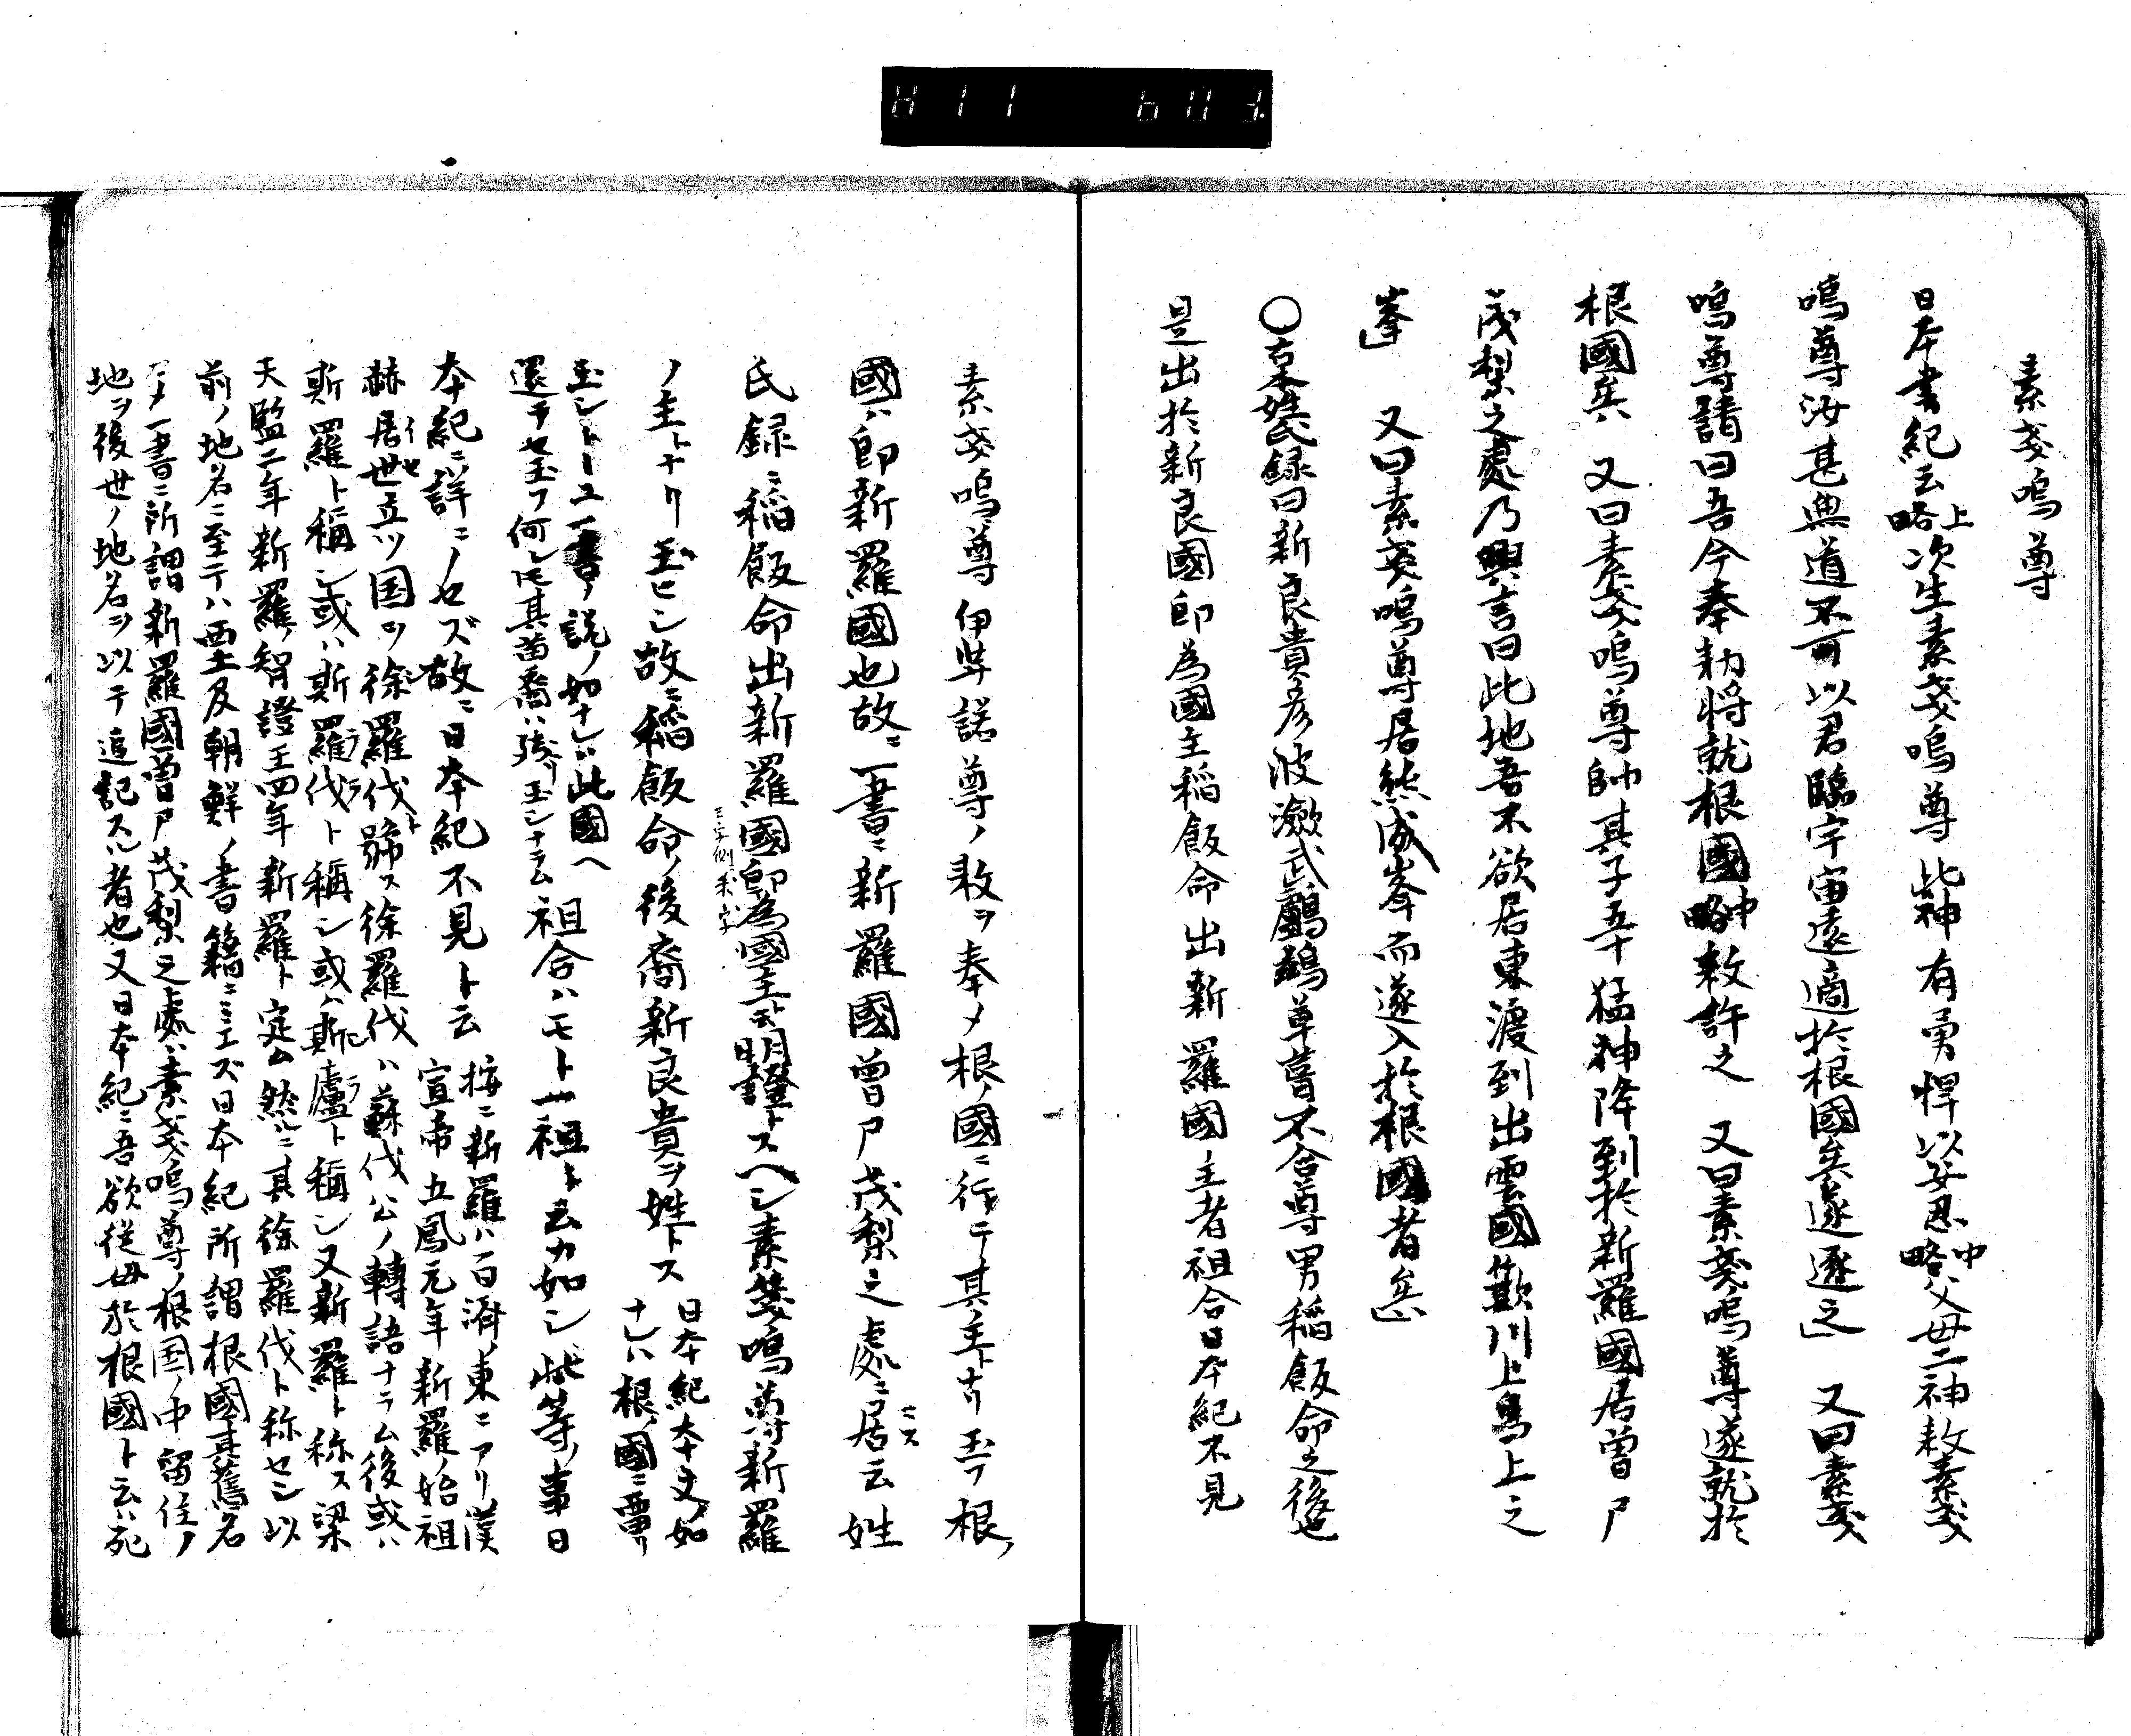 素戔嗚尊
日本書紀云上略次生素戔嗚尊此神有勇悍以安忍中略父母二神敕素戔
嗚尊汝甚無道不可以君臨宇宙遠適於根國矣遂逐之」又曰素戔
嗚尊請曰吾今奉勅将就根國中略敕許之 又曰素戔嗚尊遂就於
根國矣 又曰素戔嗚尊帥其子五十猛神降到於新羅國居曽尸
茂梨之處乃興言曰此地吾不欲居東渡到出雲國簸川上鳥上之
峯」 又曰素戔嗚尊居熊成峯而遂入於根國者矣」
〇古本姓氏録曰新良貴彦波瀲武鸕鷀草葺不合尊男稲飯命之後也
是出於新良國即為國主稲飯命出新羅國主者祖合日本紀不見
素戔嗚尊伊弉諾尊ノ敕ヲ奉メ根ノ國ニ行テ其ノ主トナリ玉フ根ノ
國ハ即新羅國也故ニ一書ニ新羅國曽尸茂梨之處ニ居ニス云姓
氏録ニ稲飯命出新羅國即為國主ト云明證トスヘシ素戔嗚尊新羅
ノ主トナリ玉ヒシ故ニ稲飯命ノ後裔新良貴ヲ姓トス 日本紀本文ノ如
ナレハ根ノ國ニ
玉シト一書ノ説ノ如ナレハ此國ヘ
還ラセ玉フ何レモ其苗裔ハ残リ玉シナラム 祖合ハモト一祖ト云カ如シ此等ノ事日
本紀ニ詳ニノセズ故ニ日本紀不見ト云 按ニ新羅ハ百濟ノ東ニアリ漢
宣帝五鳳元年新羅ノ始祖
赫居世立ツ国ヲ徐羅伐ト號ス徐羅伐ハ蘇伐公ノ轉語ナラム後或ハ
斯羅ト稱シ或ハ斯羅伐ト稱シ或ハ斯盧ト稱シ又新羅ト称ス梁
天監二年新羅ノ智證王四年新羅ト定ム然ルニ其徐羅伐ト称セシ以
前ノ地名ニ至テハ西土及朝鮮ノ書籍ニミエズ日本紀所謂根國其舊名
一書ニ所謂新羅國曽尸茂梨之處ハ素戔嗚尊ノ根国ノ中留住ノ
地ヲ後世ノ地名ヲ以テ追記スル者也又日本紀ニ吾欲従母於根國ト云ハ死